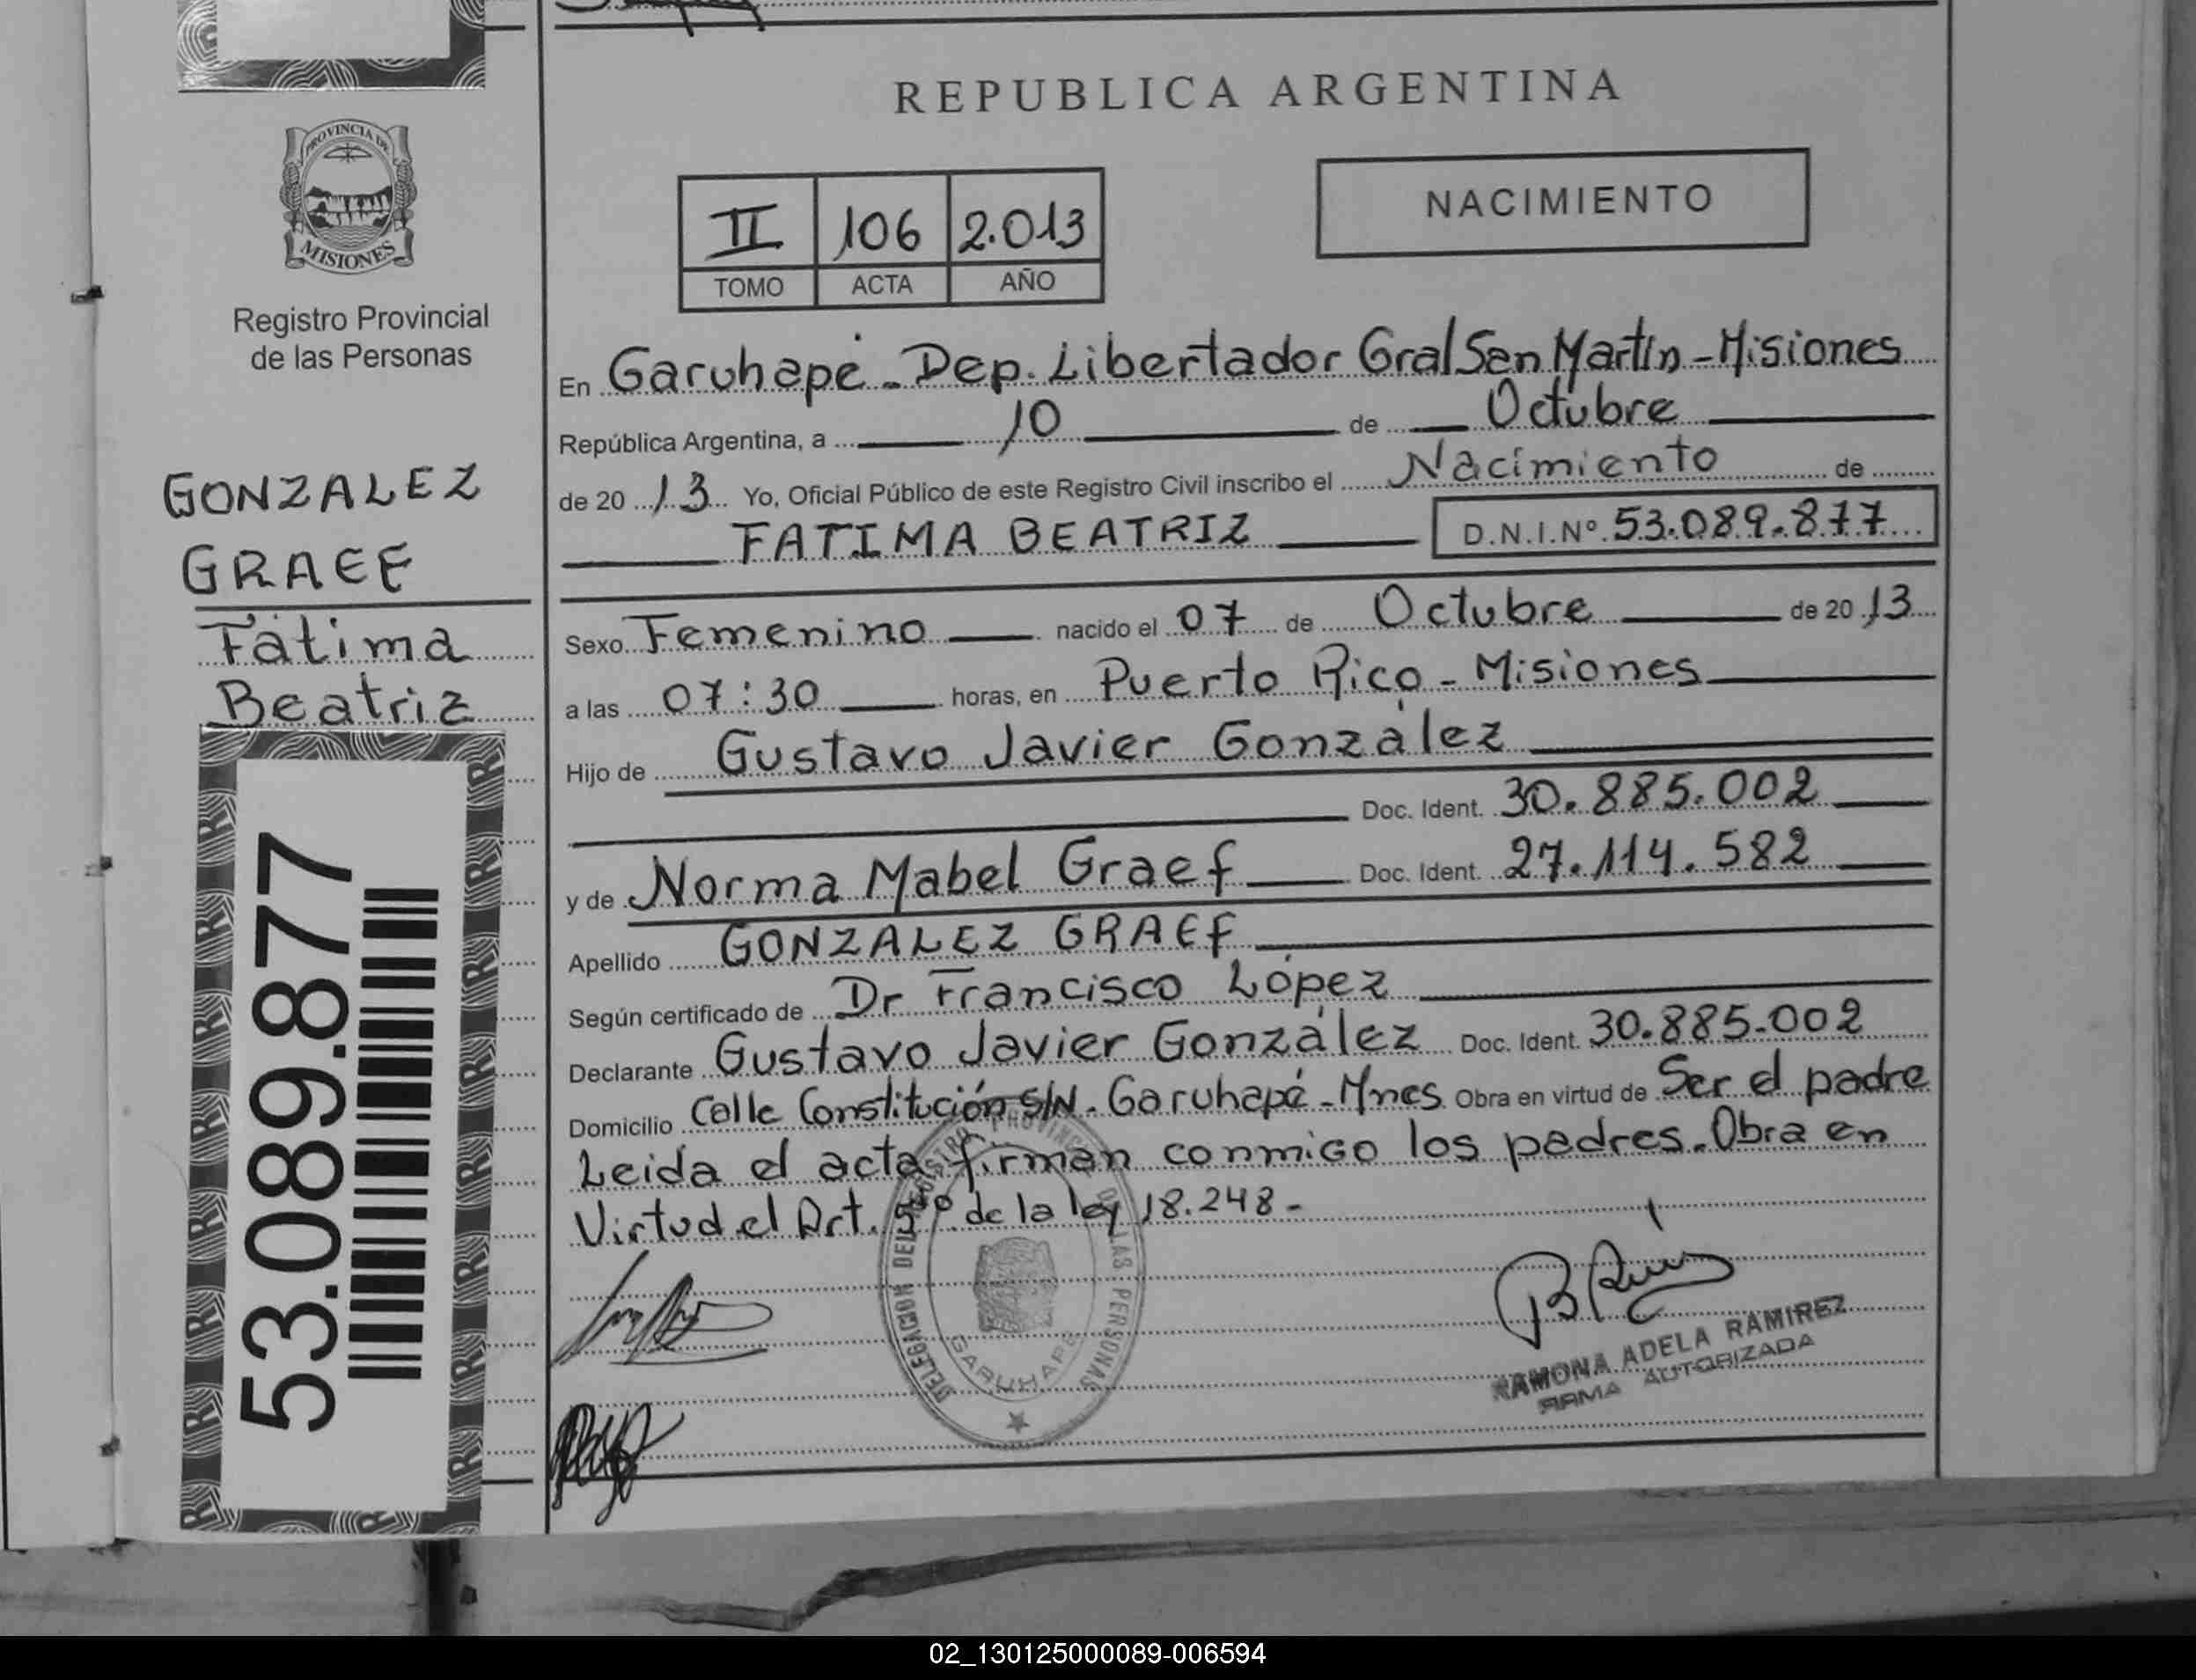 REPUBLICA ARGENTINA
PROVINCIA DE
MISIONES
Registro Provincial
de las Personas
GONZALEZ
GRAEF
Fátima
Beatriz
53.089.877
II 106 2.013
TOMO ACTA AÑO
NACIMIENTO
En Garuhapé - Dep. Libertador Gral San Martín - Misiones
República Argentina, a 10 de Octubre
de 20 13 Yo, Oficial Público de este Registro Civil inscribo el Nacimiento de
FATIMA BEATRIZ D.N.I.Nº 53.089.877
Sexo Femenino nacido el 07 de Octubre de 20 13
a las 07:30 horas, en Puerto Rico - Misiones
Hijo de Gustavo Javier González
Doc. Ident. 30.885.002
y de Norma Mabel Graef Doc. Ident. 27.114.582
Apellido GONZALEZ GRAEF
Según certificado de Dr Francisco López
Declarante Gustavo Javier González Doc. Ident. 30.885.002
Domicilio Calle Constitución S/N. Garuhapé - Mnes Obra en virtud de Ser el padre
Leida el acta firman conmigo los padres. Obra en
Virtud el Art. 5º de la ley 18.248 -
DELEGACION DEL REGISTRO PROVINCIAL DE LAS PERSONAS
GARUHAPE
RAMONA ADELA RAMIREZ
FIRMA AUTORIZADA
02_130125000089-006594